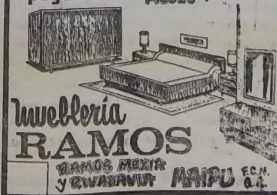 mueblería
RAMOS
RAMOS MEXIA
y RIVADAVIA MAIPU F.C.N.
G.R.